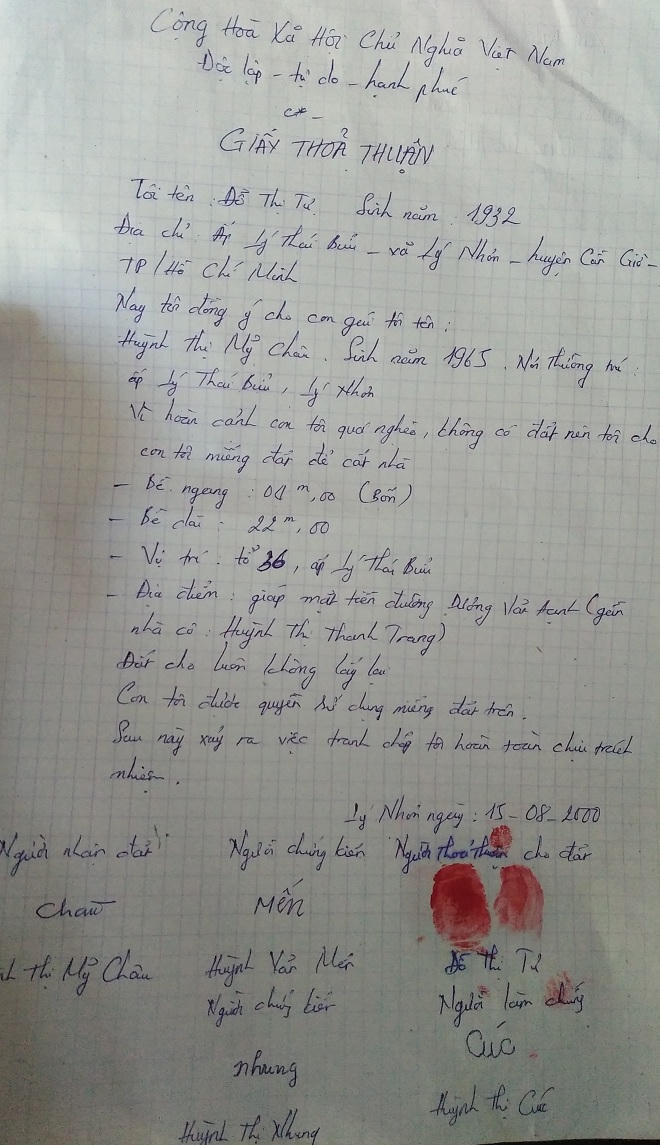 Cộng Hoà Xả Hội Chủ Nghỉa Việt Nam
Độc lập - tự do - hạnh phúc
GIẤY THOẢ THUẬN
Tôi tên : Đỗ Thị Tư Sinh năm : 1932
Địa chỉ : Ấp Lý Thái Bửu - xã Lý Nhơn - huyện Cần Giờ -
TP/Hồ Chí Minh
Nay tôi đồng ý cho con gái tôi tên :
Huỳnh Thị Mỹ Châu . Sinh năm 1965 . Nơi thường trú :
ấp Lý Thái Bửu , Lý Nhơn
Vì hoàn cảnh con tôi quá nghèo , không có đất nên tôi cho
con tôi miếng đất để cất nhà
- Bề ngang : 04 m,00 (Bốn)
- Bề dài : 22 m,00
- Vị trí : tổ 36 , ấp Lý Thái Bửu
- Địa điểm : giáp mặt tiền đường Dương Văn Hạnh (gần
nhà cô : Huỳnh Thị Thanh Trang)
Đất cho luôn không lấy lại
Con tôi được quyền sử dụng miếng đất trên .
Sau này xảy ra việc tranh chấp tôi hoàn toàn chịu trách
nhiệm .
Lý Nhơn ngày : 15 - 08 - 2000
Người nhận đất Người chứng kiến Người thoả thuận cho đất
Châu Mến
Thị Mỹ Châu Huỳnh Văn Mến Đỗ Thị Tư
Người chứng kiến Người làm chứng
nhung Cúc
Huỳnh Thị Nhung Huỳnh Thị Cúc